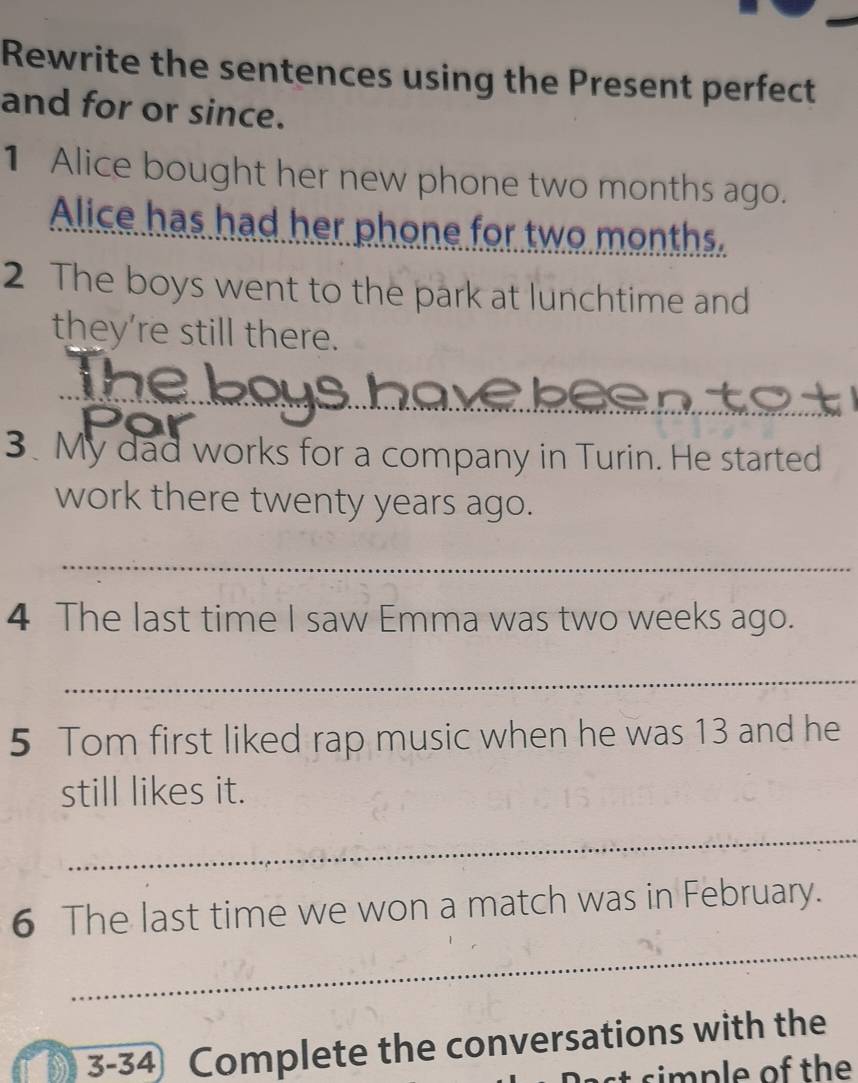 Rewrite the sentences using the Present perfect
and for or since.
1 Alice bought her new phone two months ago.
Alice has had her phone for two months.
2 The boys went to the park at lunchtime and
they're still there.
The boys have been to t
par
3 My dad works for a company in Turin. He started
work there twenty years ago.
4 The last time I saw Emma was two weeks ago.
5 Tom first liked rap music when he was 13 and he
still likes it.
6 The last time we won a match was in February.
3-34 Complete the conversations with the
simple of the